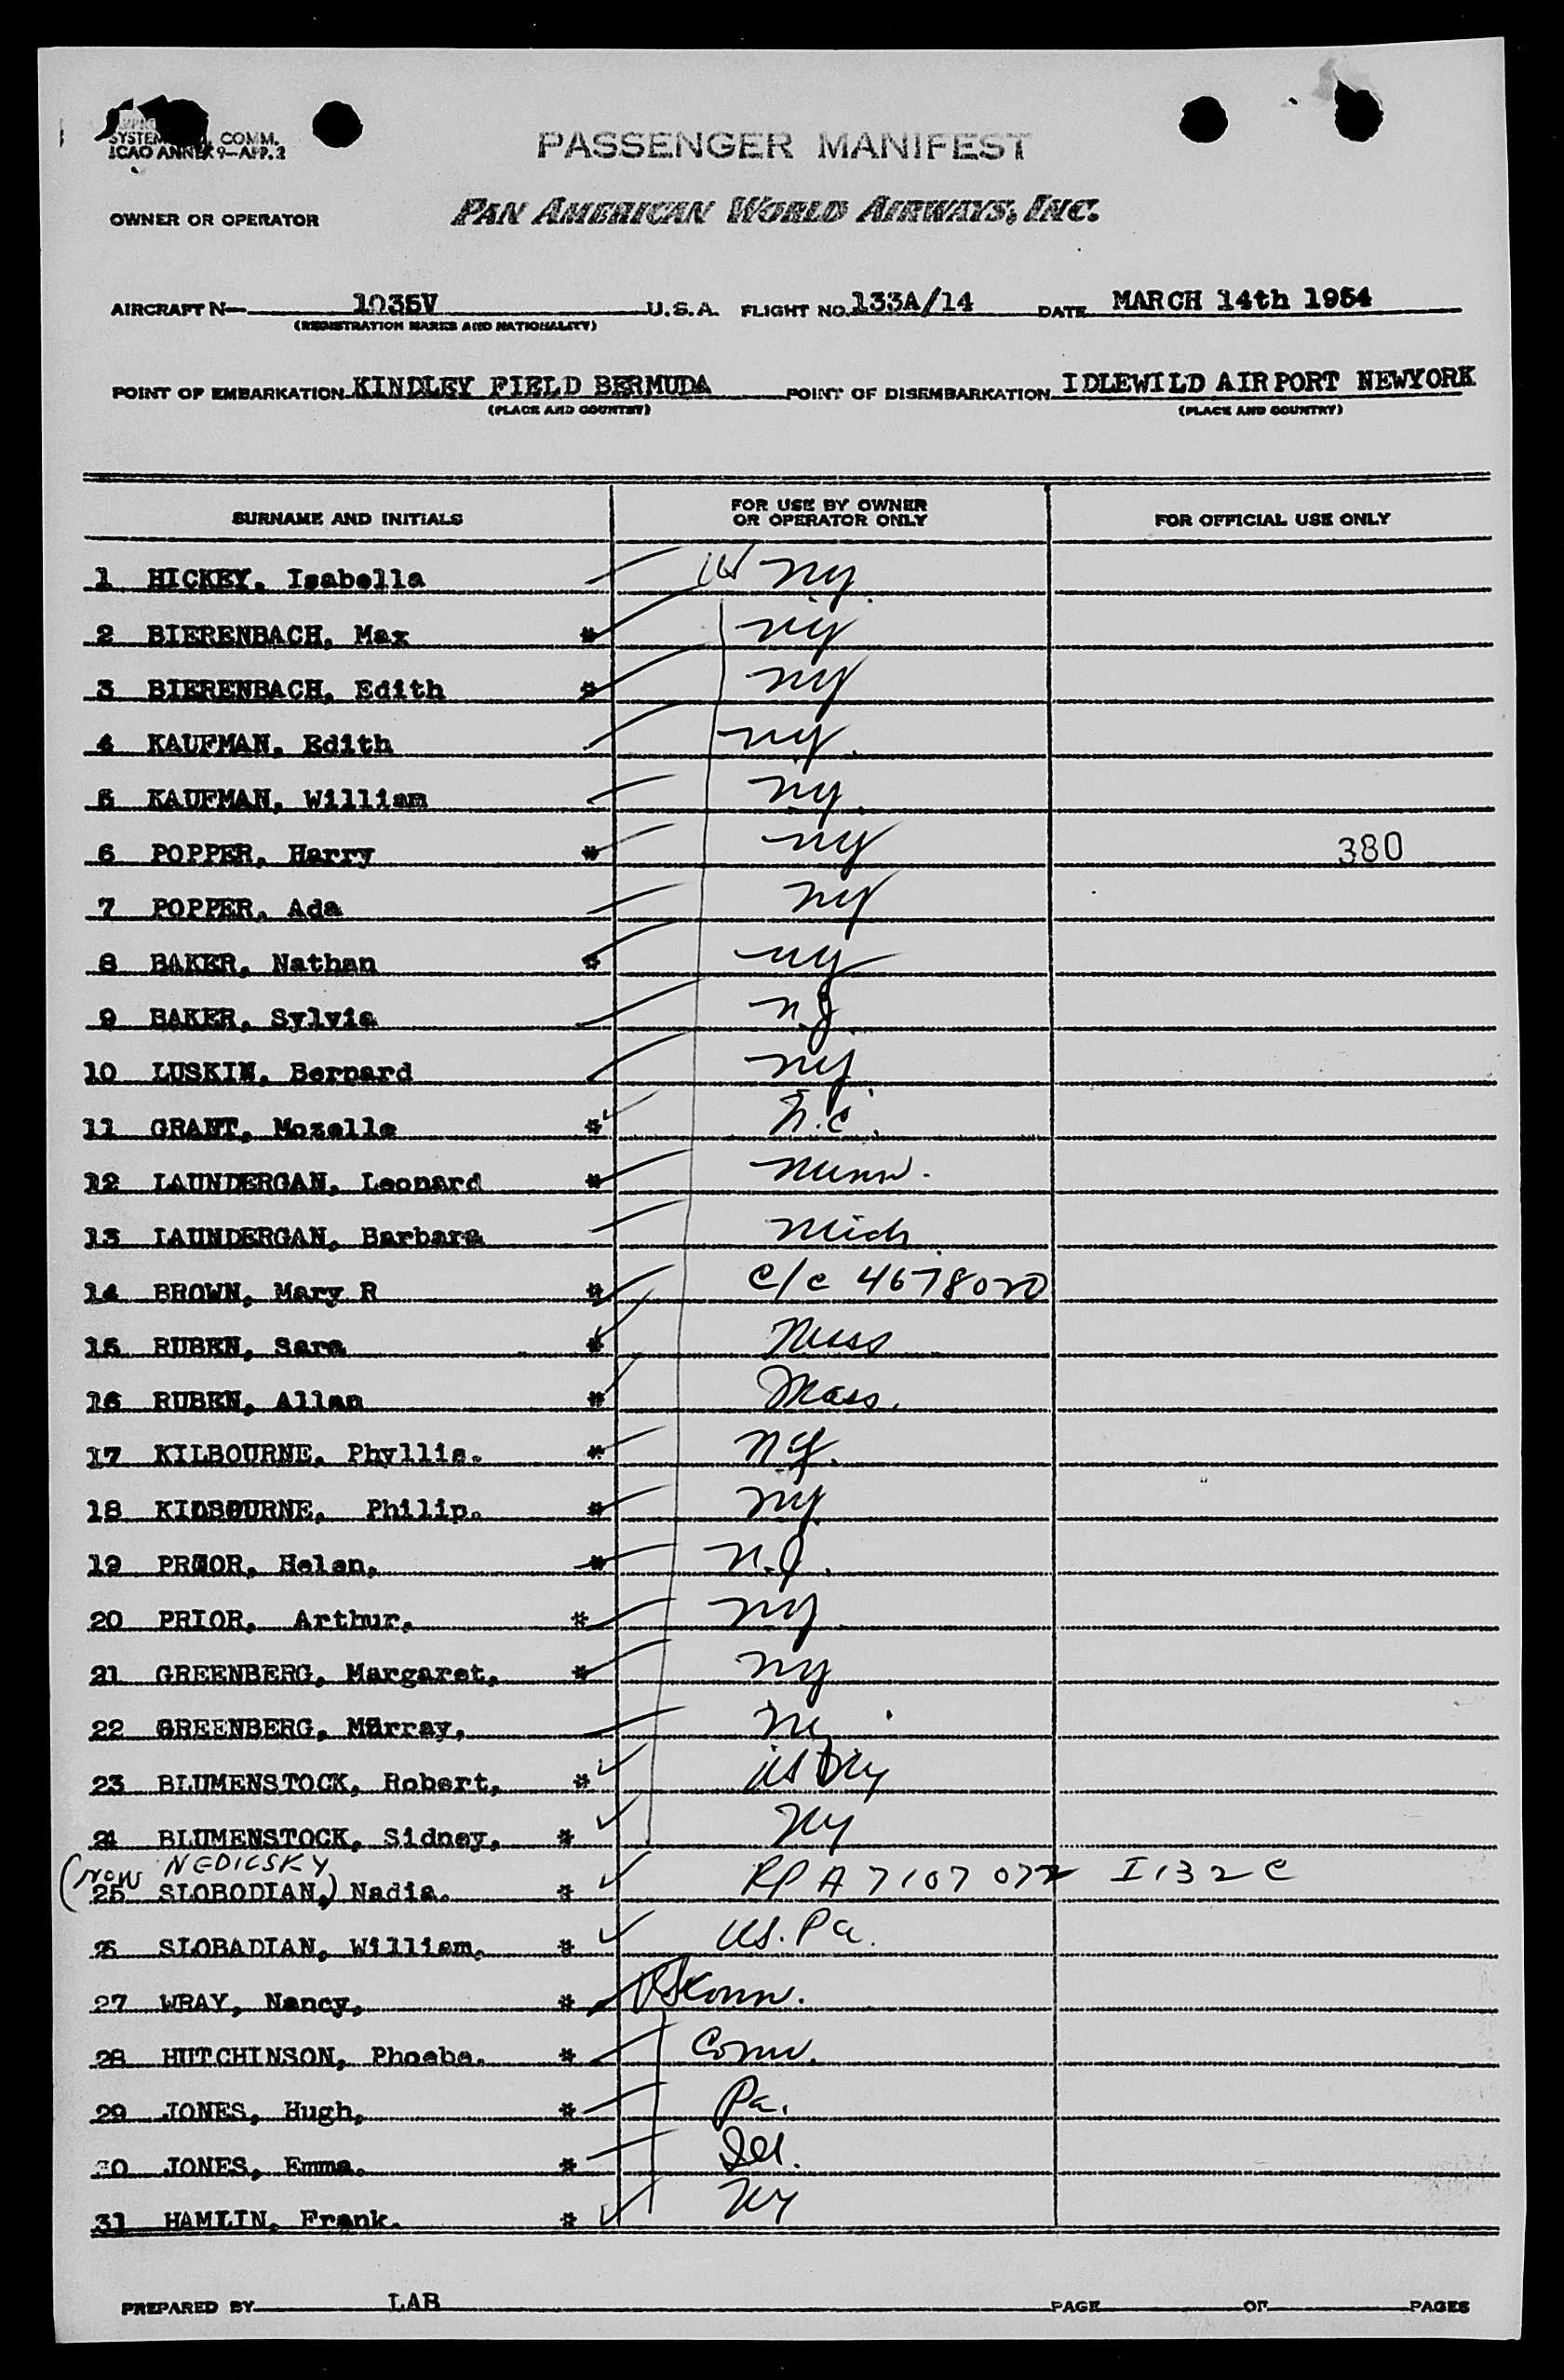 SYSTEM COMM.
ICAO ANNEX 9—APP. 2
PASSENGER MANIFEST
OWNER OR OPERATOR PAN AMERICAN WORLD AIRWAYS, INC.
AIRCRAFT N— 1035V U.S.A. FLIGHT NO. 133A/14 DATE MARCH 14th 1954
(REGISTRATION MARKS AND NATIONALITY)
POINT OF EMBARKATION KINDLEY FIELD BERMUDA POINT OF DISEMBARKATION IDLEWILD AIRPORT NEWYORK
(PLACE AND COUNTRY) (PLACE AND COUNTRY)
SURNAME AND INITIALS FOR USE BY OWNER OR OPERATOR ONLY FOR OFFICIAL USE ONLY
1 HICKEY, Isabella US ny.
2 BIERENBACH, Max * ny
3 BIERENBACH, Edith * ny
4 KAUFMAN, Edith ny.
5 KAUFMAN, William ny.
6 POPPER, Harry * ny 380
7 POPPER, Ada ny
8 BAKER, Nathan * ny
9 BAKER, Sylvia n.J.
10 LUSKIN, Bernard ny.
11 GRANT, Mozelle * n.C.
12 LAUNDERGAN, Leonard * Minn.
13 LAUNDERGAN, Barbara Mich.
14 BROWN, Mary R * C/C 4678020
15 RUBEN, Sara * Mass
16 RUBEN, Allan * Mass.
17 KILBOURNE, Phyllis. * ny.
18 KILBOURNE, Philip. * ny.
19 PRIOR, Helen, * n.J.
20 PRIOR, Arthur, * ny.
21 GREENBERG, Margaret, * ny
22 GREENBERG, Murray,
23 BLUMENSTOCK, Robert, * US ny
24 BLUMENSTOCK, Sidney, * ny
(NOW NEDIESKY
25 SLOBODIAN,) Nadia. * RP A7107 072 I 132 C
26 SLOBADIAN, William, * US. Pa.
27 WRAY, Nancy, * US Conn.
28 HUTCHINSON, Phoebe. * Conn.
29 JONES, Hugh, * Pa.
30 JONES, Emma. *
31 HAMLIN, Frank. * ny
PREPARED BY LAB PAGE OF PAGES